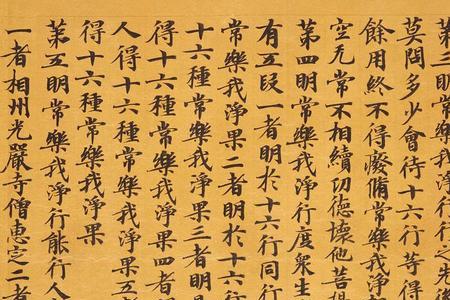 第三明常樂我淨行之先後
莫問多少會待十六行等得
餘用終不得廢脩常樂我淨
空无常不相續功德壞他菩
第四明常樂我淨行度衆生
有五段一者明於十六行同行
常樂我淨果二者明於十六行
十六種常樂我淨果三者明
得十六種常樂我淨果四者
人得十六種常樂我淨果五
得十六種常樂我淨果
第五明常樂我淨行能行人
一者相州光嚴寺僧惠定二者